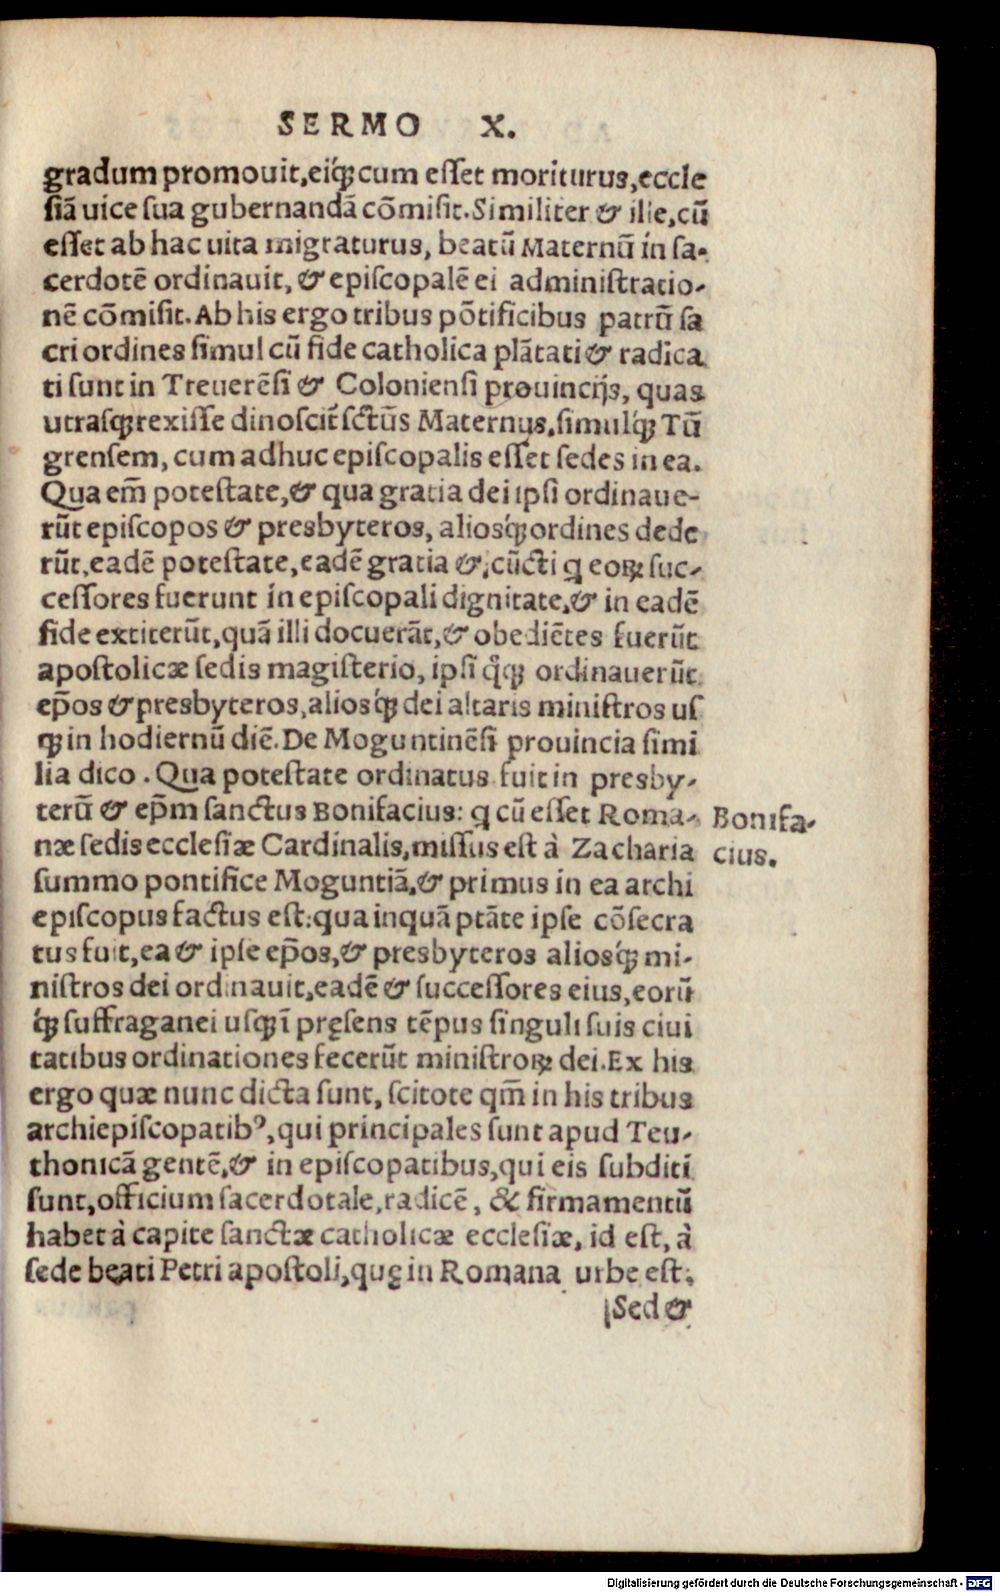 SERMO X.
gradum promouit, eiq́ꝫ cum eſſet moriturus, eccle
ſiã uice ſua gubernandã cõmiſit. Similiter & ille, cũ
eſſet ab hac uita migraturus, beatũ Maternũ in ſa-
cerdotẽ ordinauit, & epiſcopalẽ ei adminiſtratio-
nẽ cõmiſit. Ab his ergo tribus põtificibus patrũ ſa
cri ordines ſimul cũ fide catholica plãtati & radica
ti ſunt in Treuerẽſi & Colonienſi prouincijs, quas
utraſqꝫ rexiſſe dinoſcit̃ ſct̃us Maternus, ſimulq́ꝫ Tũ
grenſem, cum adhuc epiſcopalis eſſet ſedes in ea.
Qua em̃ poteſtate, & qua gratia dei ipſi ordinaue-
rũt epiſcopos & presbyteros, alioſq́ꝫ ordines dede
rũt, eadẽ poteſtate, eadẽ gratia &, cũcti q eoꝝ ſuc-
ceſſores fuerunt in epiſcopali dignitate, & in eadẽ
fide extiterũt, quã illi docuerãt, & obediẽtes fuerũt
apoſtolicæ ſedis magiſterio, ipſi q̊qꝫ ordinauerũt
ep̃os & presbyteros, alioſq́ꝫ dei altaris miniſtros uſ
qꝫ in hodiernũ diẽ. De Moguntinẽſi prouincia ſimi
lia dico. Qua poteſtate ordinatus fuit in presby-
terũ & ep̃m ſanctus Bonifacius: q cũ eſſet Roma-
næ ſedis eccleſiæ Cardinalis, miſſus eſt à Zacharia
ſummo pontifice Moguntiã, & primus in ea archi
epiſcopus factus eſt: qua inquã ptãte ipſe cõſecra
tus fuit, ea & ipſe ep̃os, & presbyteros alioſq́ꝫ mi-
niſtros dei ordinauit, eadẽ & ſucceſſores eius, eorũ
q́ꝫ ſuffraganei uſqꝫ ĩ pręſens tẽpus ſinguli ſuis ciui
tatibus ordinationes fecerũt miniſtroꝝ dei. Ex his
ergo quæ nunc dicta ſunt, ſcitote qm̃ in his tribus
archiepiſcopatibꝰ, qui principales ſunt apud Teu-
thonicã gentẽ, & in epiſcopatibus, qui eis ſubditi
ſunt, officium ſacerdotale, radicẽ, & firmamentũ
habet à capite ſanctæ catholicæ eccleſiæ, id eſt, à
ſede beati Petri apoſtoli, quę in Romana urbe eſt.
Sed &
Bonifa-
cius.
Digitalisierung gefördert durch die Deutsche Forschungsgemeinschaft - DFG